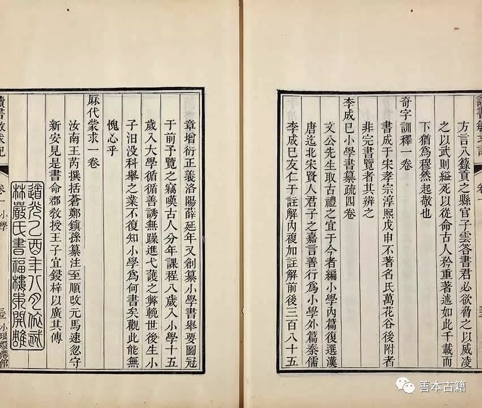 方言入籙貢之縣官子雲答書君必欲脅之以威凌
之以武則縊死以從命古人矜重著述如此千載而
下猶為起敬也
奇字訓釋一卷
書成于宋孝宗淳熙戊申不著名氏萬花谷後附者
非完書覽者其辨之
李成巳小學書纂疏四卷
文公先生取古禮之宜于今者編小學內篇復選漢
唐迄北宋賢人君子之嘉言善行為小學外篇泰儒
李成巳友仁于註解內復加註解前後三百八十五
章增衍正義洛陽薛延年又創纂小學書舉要圖冠
于前予覽之竊嘆古人分年課程八歲入小學十五
歲入大學循循善誘無躐進弋獲之弊輓世後生小
子汨沒科舉之業不復知小學為何書矣觀此能無
愧心乎
厤代蒙求一卷
汝南王芮撰括蒼鄭鎮孫纂注至順改元馬速忽守
新安見是書命郡敎授王子宜鋟梓以廣其傳
道光乙酉年八月武
林嚴氏書福樓東開雕
讀書敏求記 卷一 小學
善本古籍